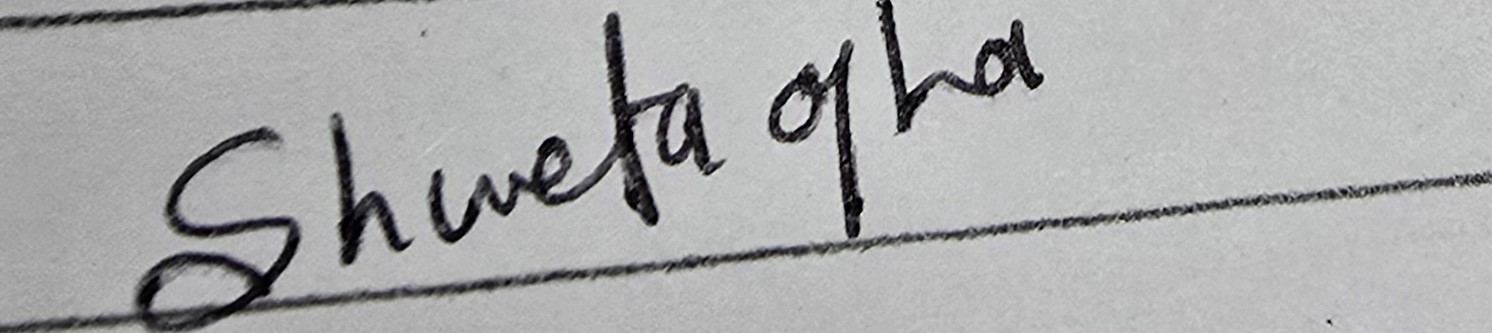 Shweta ojha